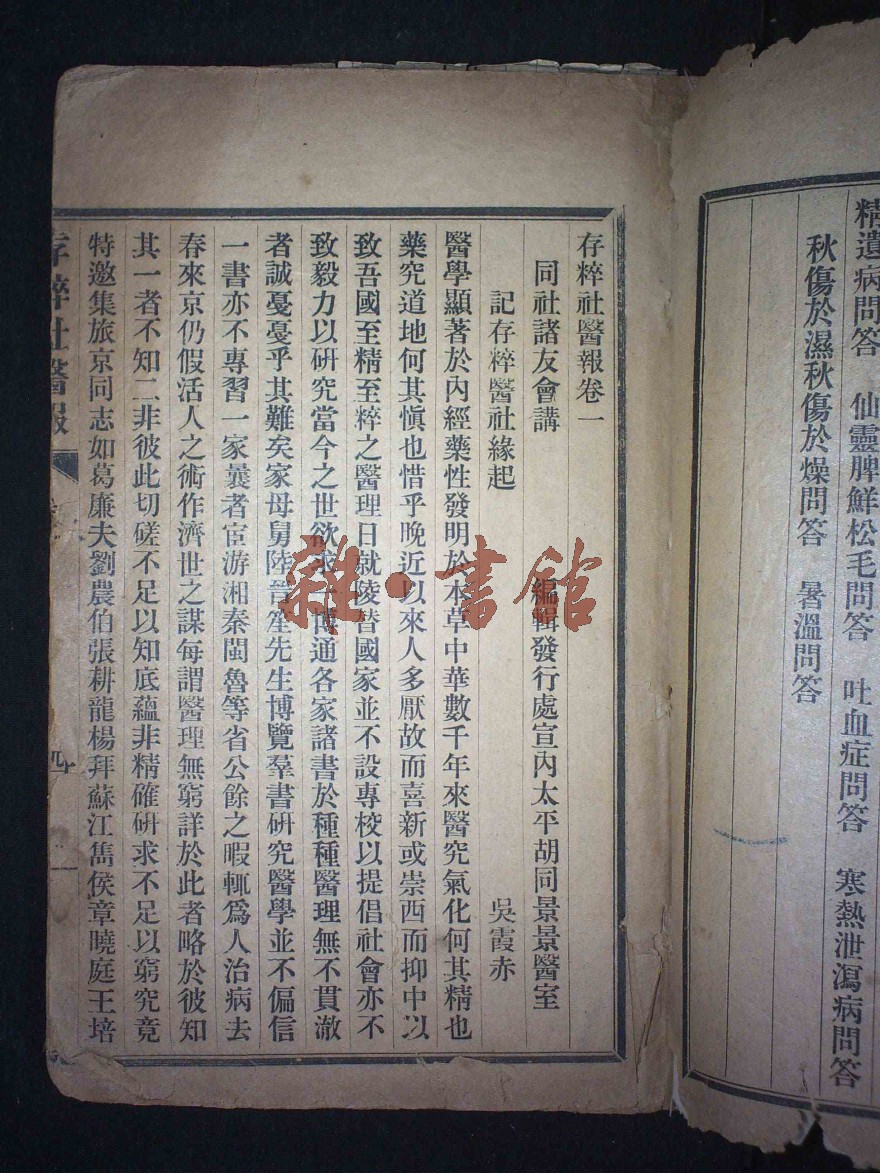 精遺病問答　仙靈脾鮮松毛問答　吐血症問答　寒熱泄瀉病問答
秋傷於濕秋傷於燥問答　暑溫問答
存粹社醫報卷一
同社諸友會講　編輯發行處宣內太平胡同景景醫室
記存粹醫社緣起　吳霞赤
醫學顯著於內經藥性發明於本草中華數千年來醫究氣化何其精也
藥究道地何其愼也惜乎晚近以來人多厭故而喜新或崇西而抑中以
致吾國至精至粹之醫理日就陵替國家並不設專校以提倡社會亦不
致毅力以研究當今之世欲求一博通各家諸書於種種醫理無不貫澈
者誠憂憂乎其難矣家母舅陸晉笙先生博覽羣書研究醫學並不偏信
一書亦不專習一家曩者宦游湘秦閩魯等省公餘之暇輒爲人治病去
春來京仍假活人之術作濟世之謀每謂醫理無窮詳於此者略於彼知
其一者不知二非彼此切磋不足以知底蘊非精確研求不足以窮究竟
特邀集旅京同志如葛廉夫劉農伯張耕龍楊拜蘇江雋侯章曉庭王培
存粹社醫報
四
雜·書館